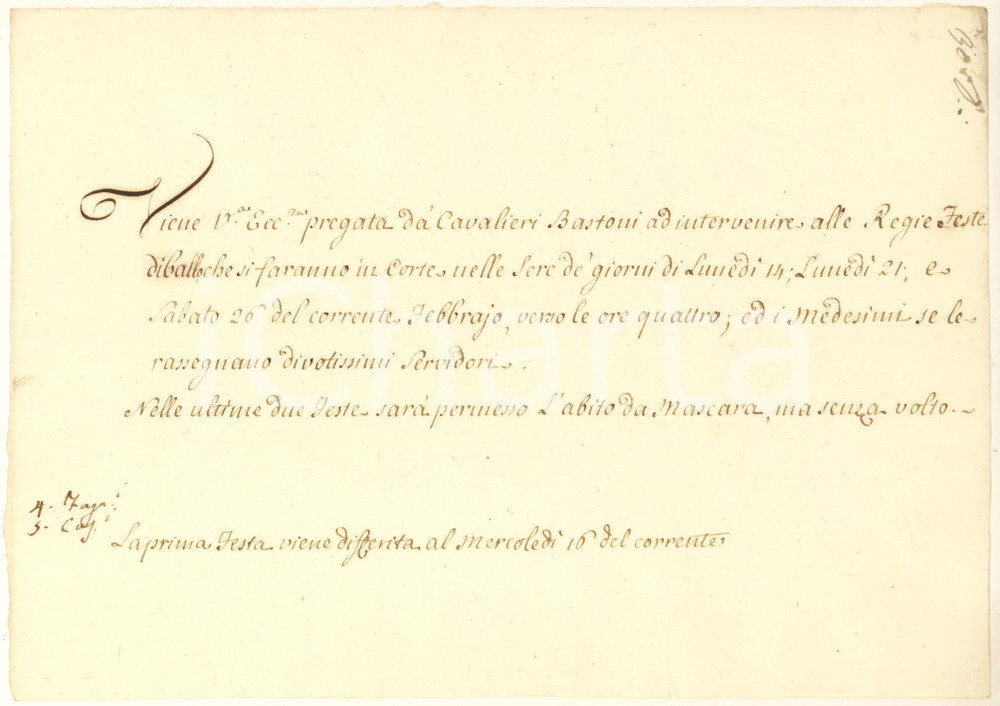 Viene V.ra Ecc.za pregata dà Cavalieri Bastoni ad intervenire alle Regie Feste
di ballo che si faranno in Corte nelle Sere de' giorni di Lunedì 14; Lunedì 21; e
Sabato 26 del corrente Febbrajo, verso le ore quattro; ed i Medesimi se le
rassegnano divotissimi Servidori.
Nelle ultime due Feste sarà permesso L'abito da Mascara, ma senza volto.
4.
5.
La prima Festa viene differita al Mercoledì 16 del corrente
iCharta